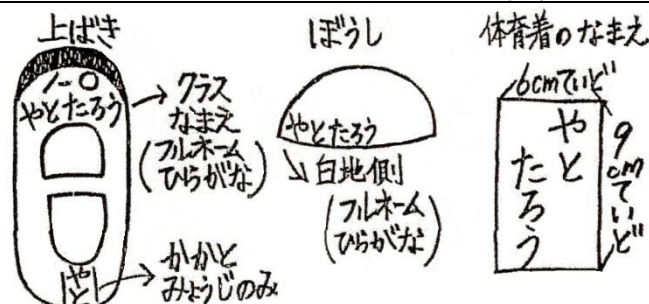 上ばき
1-〇
やとたろう
クラス
なまえ
(フルネーム
ひらがな)
やと
かかと
みょうじのみ
ぼうし
やとたろう
白地側
(フルネーム
ひらがな)
体育着のなまえ
6cmていど
やと
たろう
9cmていど